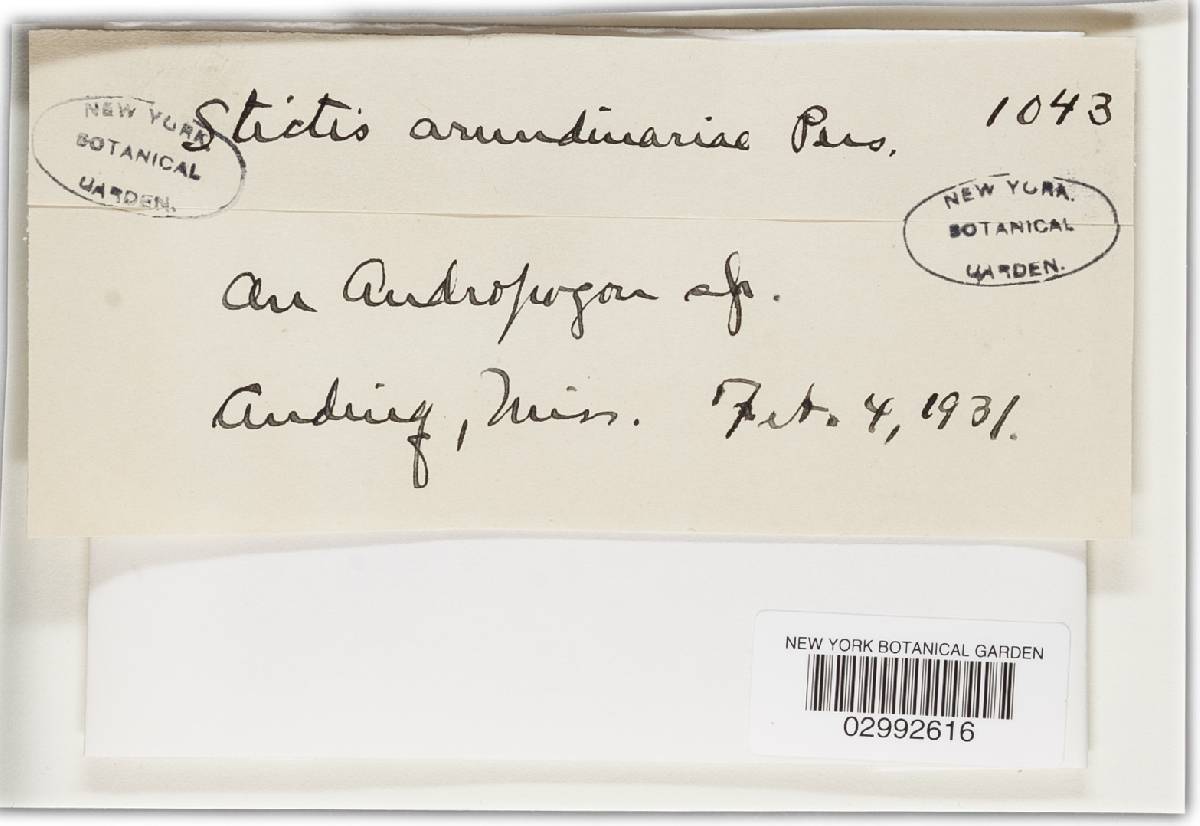 Stictis arundinariae Pers. 1043
NEW YORK
BOTANICAL
GARDEN.
NEW YORK.
BOTANICAL
GARDEN.
on Andropogon sp.
Anding, Miss. Feb. 4, 1931.
NEW YORK BOTANICAL GARDEN
02992616